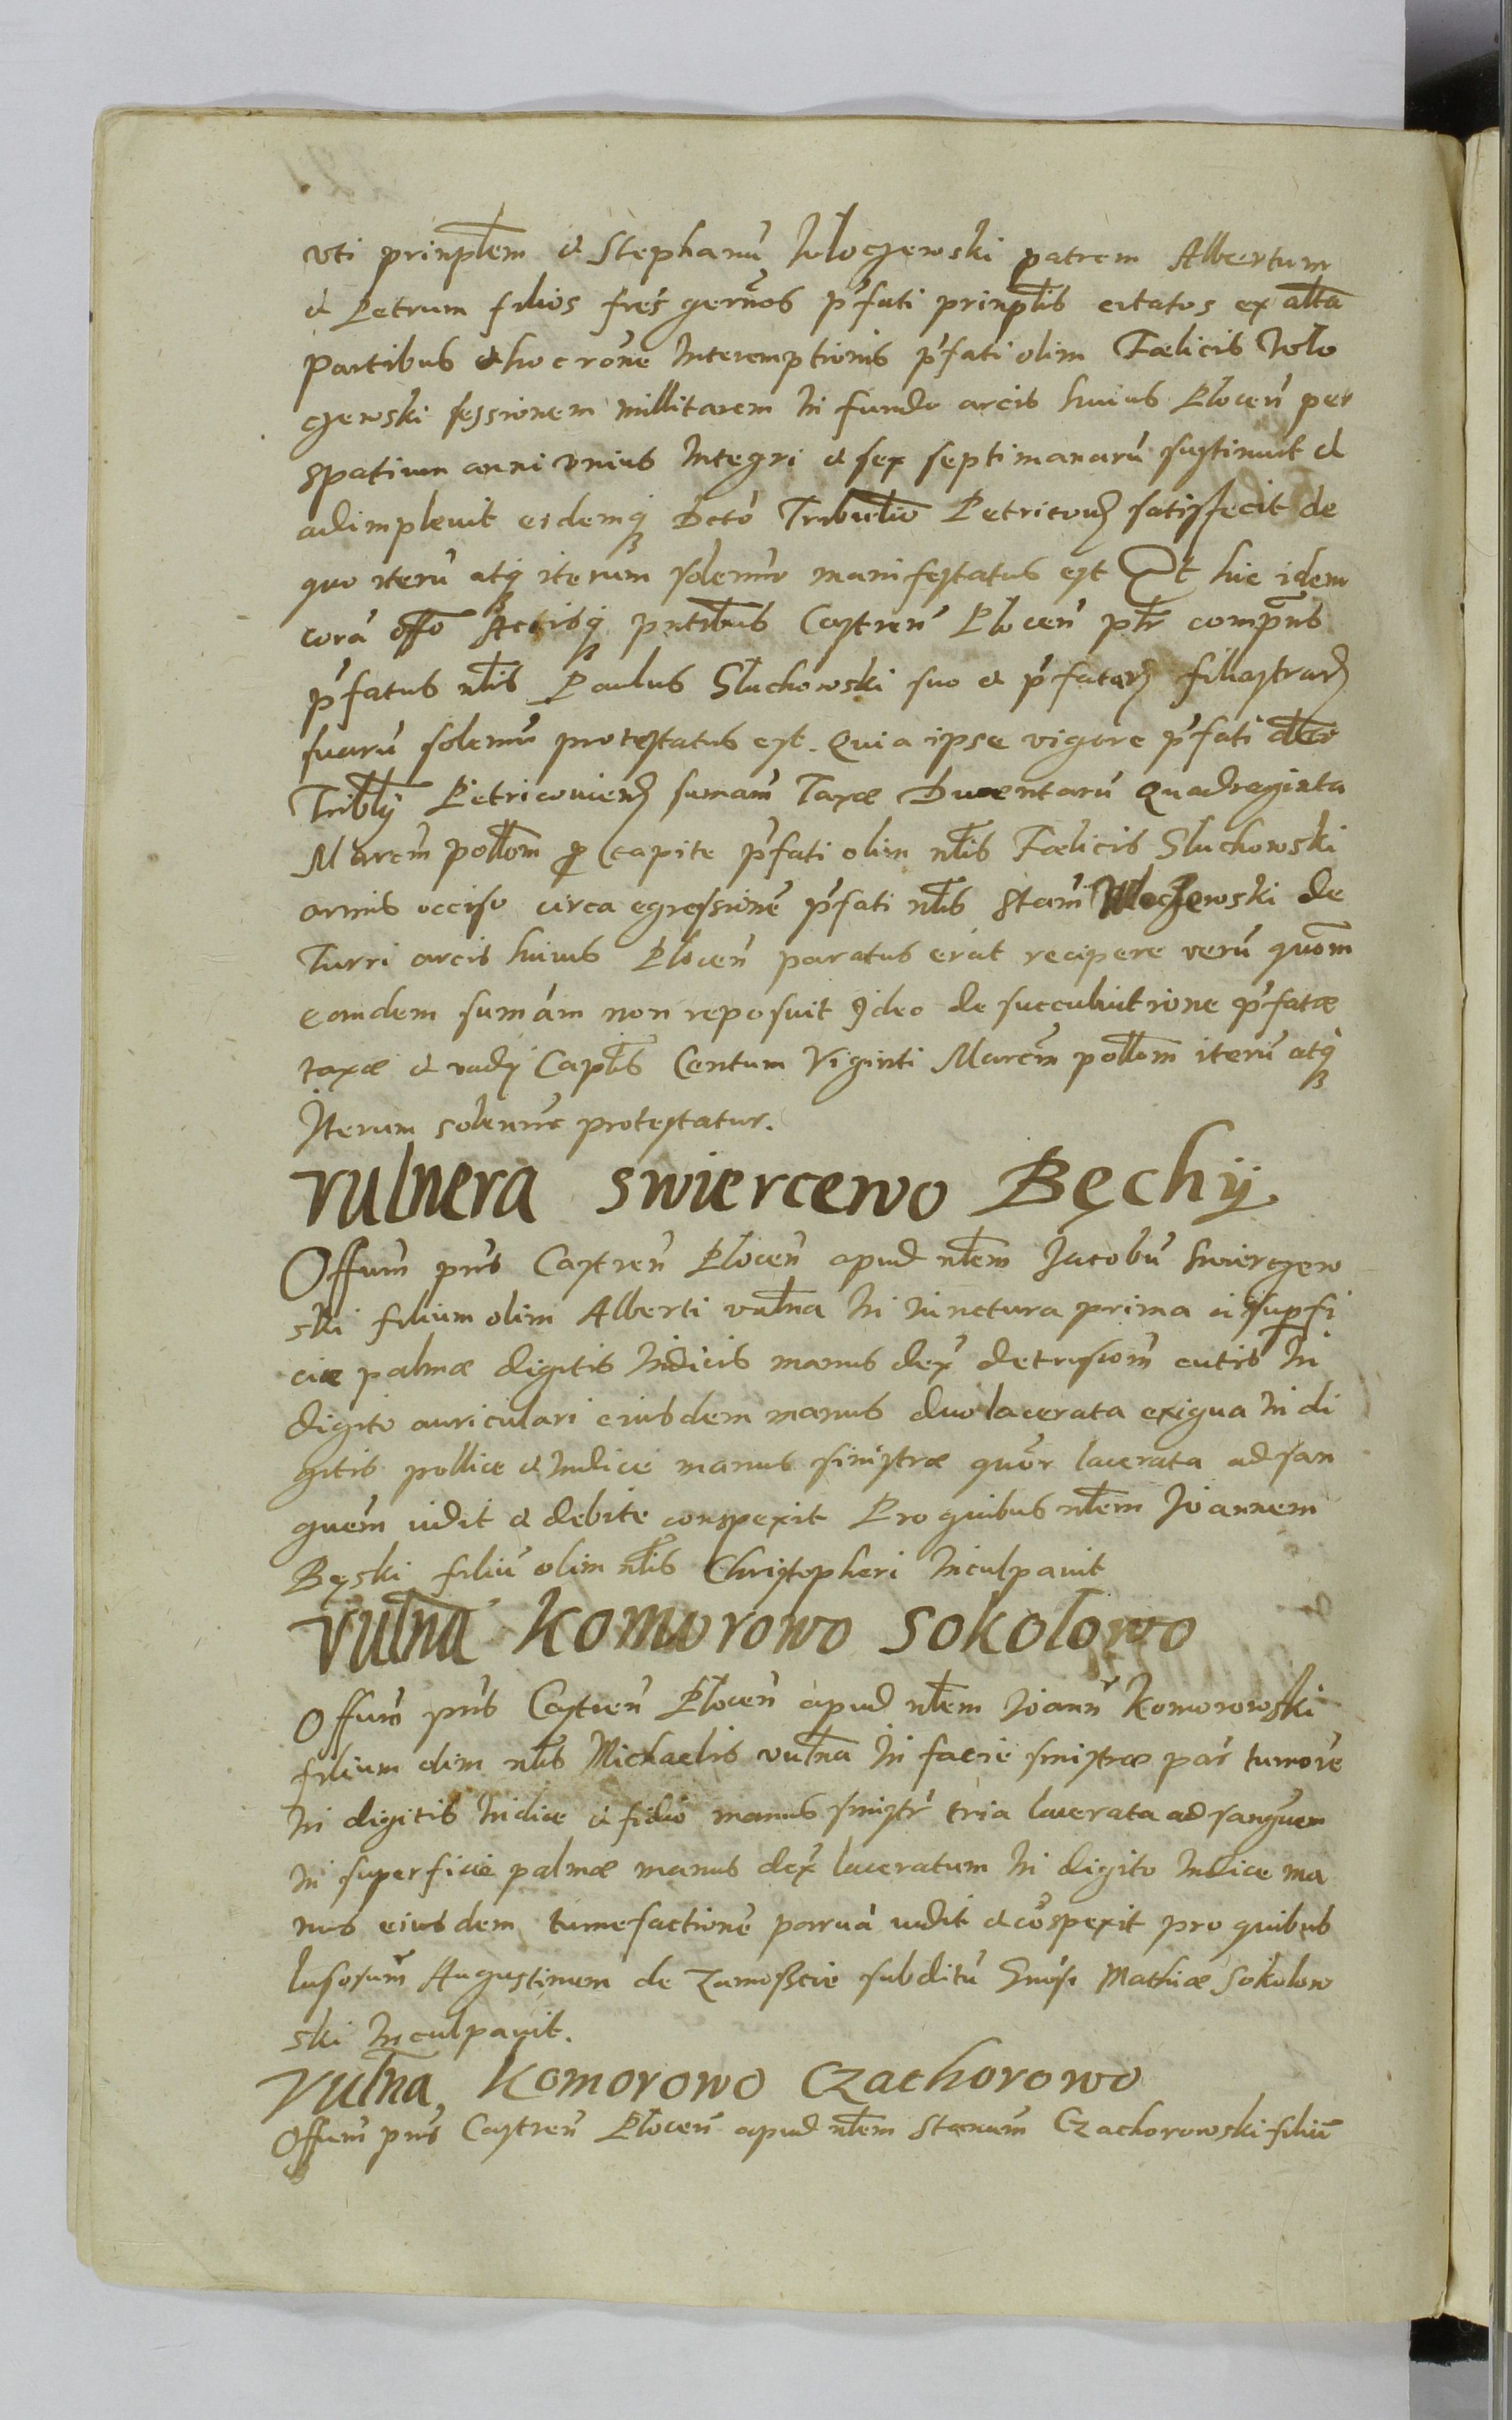 vti prinplem & Stephanu Wloczewski patrem Albertum
& Petrum filios fres germos pfati prinplis citatos ex alta
partibus & hoc rone Interemptionis pfati olim Fœlicis Wlo
czewski sessionem millitarem in fundo arcis huius Plocen per
spatium anni vnius Integri & sex septimanaru sustinuit &
adimplevit eidemq Dcto Tribulio Petricovi satisfecit de
quo iteru atq iterum solemr manifestatus est Et hic idem
cora offo Actisq pntibus Castren Plocen pltr compns
pfatus nlis Paulus Sluchowski suo & pfatar filiastrar
suaru solemr protestatus est. Quia ipse vigore pfati dto
Triblij Petricovien sumam Taxæ Ducentaru Quadraginta
Marcm pollom p capite pfati olim nlis Fœlicis Sluchowski
armis occiso circa egressione pfati nlis Stani Wloczewski de
Turri arcis huius Plocen paratus erat recipere veru quom
eandem sumam non reposuit Ideo de succubuitione pfatæ
taxæ & vadij Caplis Centum Viginti Marcm pollom iteru atq
Iterum solemr protestatur.
Vulnera Swiercewo Bęchij
Offum pns Castren Plocen apud nlem Jacobu Swierczew
ski filium olim Alberti vulna in iunctura prima i supfi
ciæ palmæ digitis Indicis manus dex detrusiom cutis in
digito auriculari eiusdem manus duo lacerata exigua in di
gitis pollice & Indice manus sinistræ quor lacerata ad san
guem vidit & debite conspexit Pro quibus nlem Joannem
Bęski filiu olim nlis Christopheri Inculpavit
Vulna Komorowo Sokolowo
Offum pns Castren Plocen apud nlem Joann Komorowski
filium olim nlis Michaelis vulna in facie sinistræ par tumore
in digitis Indice & fidio manus sinistr tria lacerata ad sanguem
in superficie palmæ manus dex laceratum in digito Indice ma
nus eiusdem tumefactione parva vidit & cospexit pro quibus
lusosum Augustinum de Zamoßcie subditu Gnosi Mathiæ Sokolow
ski Inculpavit.
Vulna Komorowo Czachorowo
Offum pns Castren Plocen apud nlem Stanum Czachorowski filiu